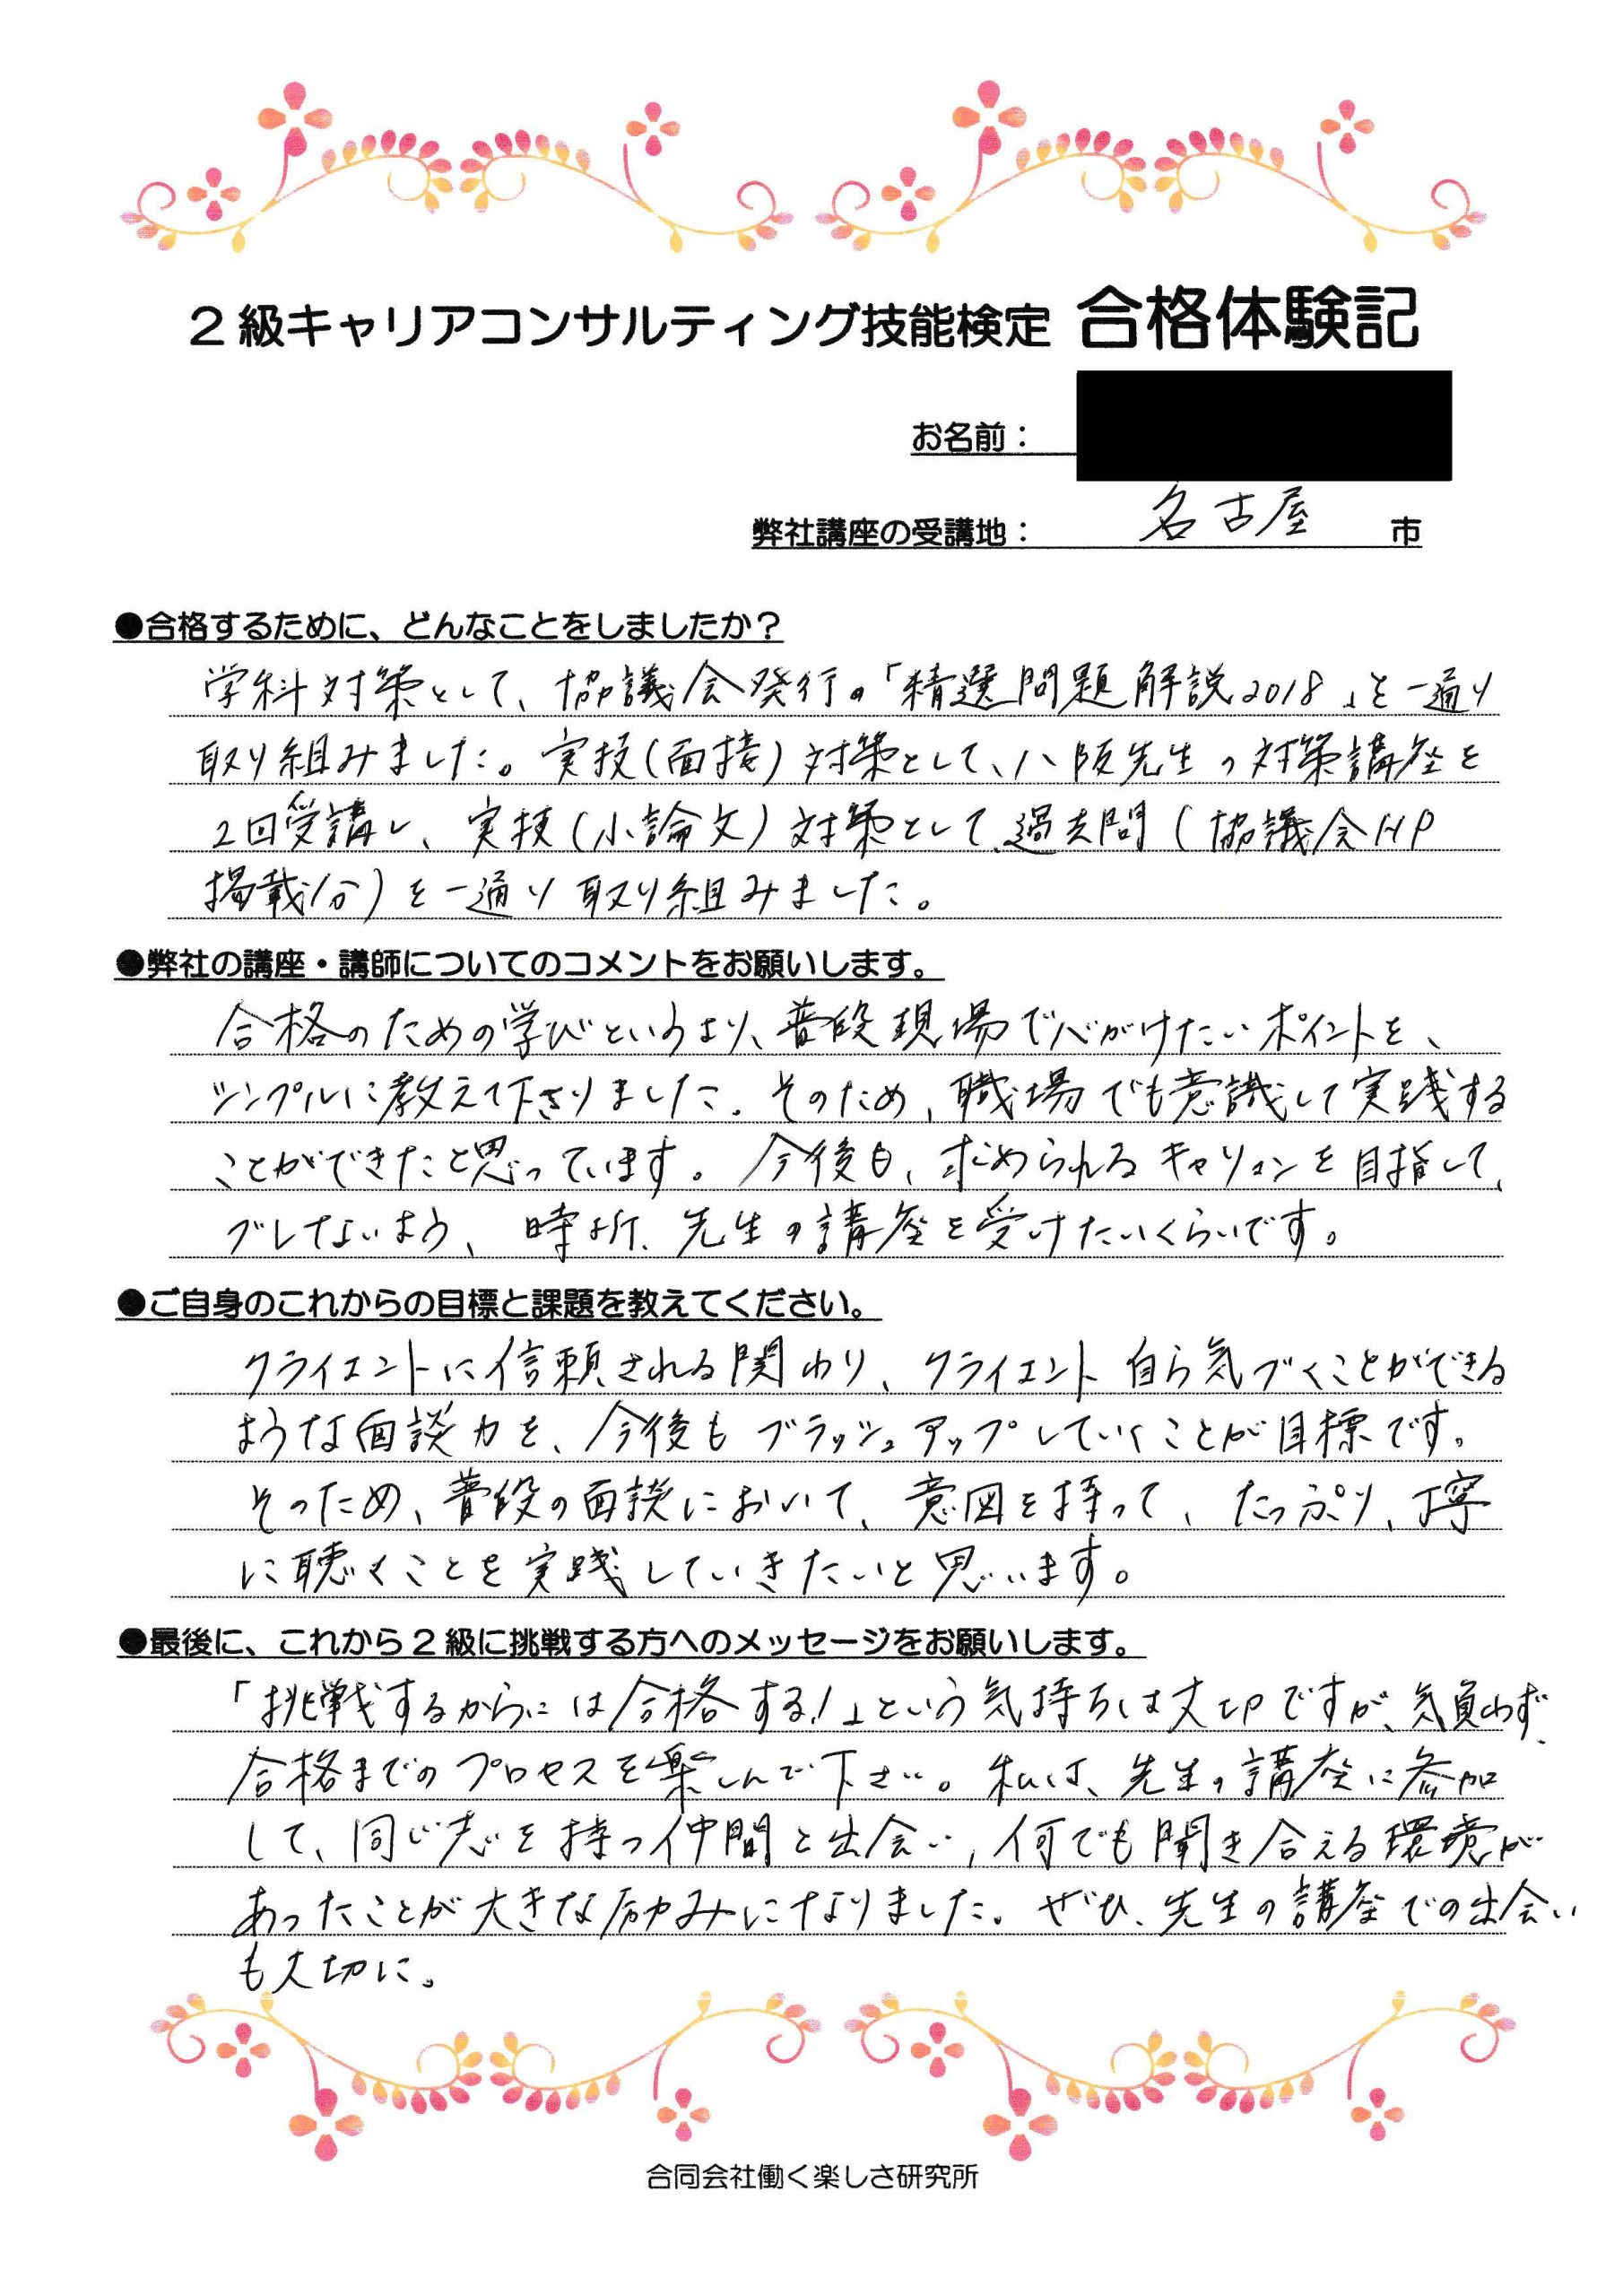 2級キャリアコンサルティング技能検定 合格体験記
お名前：
弊社講座の受講地： 名古屋 市
●合格するために、どんなことをしましたか？
学科対策として、協議会発行の「精選問題解説2018」を一通り
取り組みました。実技(面接)対策として、八阪先生の対策講座を
2回受講し、実技(小論文)対策として、過去問(協議会HP
掲載分)を一通り取り組みました。
●弊社の講座・講師についてのコメントをお願いします。
合格のための学びというより、普段現場で心がけたいポイントを、
シンプルに教えて下さりました。そのため、職場でも意識して実践する
ことができたと思っています。今後も、求められるキャリコンを目指して、
ブレないよう、時折、先生の講座を受けたいくらいです。
●ご自身のこれからの目標と課題を教えてください。
クライエントに信頼される関わり、クライエント自ら気づくことができる
ような面談力を、今後もブラッシュアップしていくことが目標です。
そのため、普段の面談において、意図を持って、たっぷり、丁寧
に聴くことを実践していきたいと思います。
●最後に、これから2級に挑戦する方へのメッセージをお願いします。
「挑戦するからには合格する!」という気持ちは大切ですが、気負わず、
合格までのプロセスを楽しんで下さい。私は、先生の講座に参加
して、同じ志を持つ仲間と出会い、何でも聞き合える環境が
あったことが大きな励みになりました。ぜひ、先生の講座での出会い
も大切に。
合同会社働く楽しさ研究所